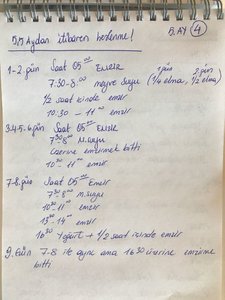 5. AY 4
5. Aydan itibaren beslenme!
1-2. gün Saat 05⁰⁰ Emzir 1. gün 2. gün
7.30-8.00 meyve suyu (1/4 elma, 1/2 elma)
1/2 saat içinde emzir
10:30 - 11⁰⁰ emzir
3.4.5.6.gün Saat 05⁰⁰ Emzir
7³⁰-8⁰⁰ M.suyu
üzerine emzirmek bitti
10³⁰ - 11⁰⁰ emzir
7-8.gün Saat 05⁰⁰ Emzir
7³⁰-8⁰⁰ M.suyu
10³⁰-11⁰⁰ emzir
13⁰⁰-14⁰⁰ emzir
16³⁰ Yoğurt + 1/2 saat içinde emzir
9. Gün 7-8 ile aynı ama 16³⁰ üzerine emzirme
bitti